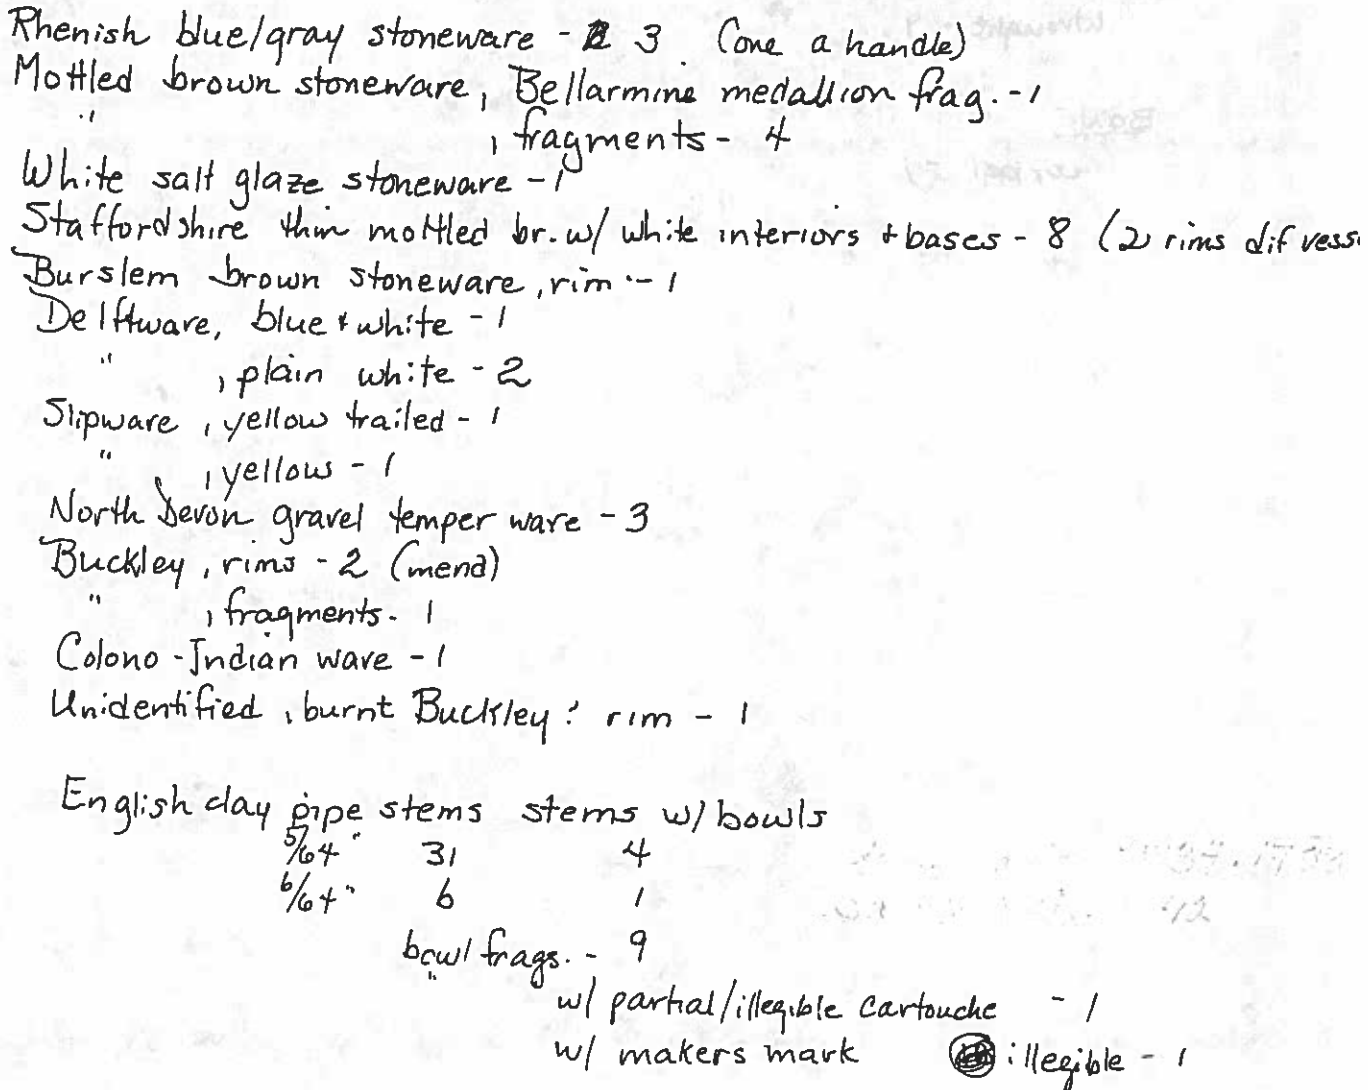 Rhenish blue/gray stoneware - 3 (one a handle)
Mottled brown stoneware, Bellarmine medallion frag. - 1
" , fragments - 4
White salt glaze stoneware - 1
Staffordshire thin mottled br. w/ white interiors + bases - 8 (2 rims dif vess
Burslem brown stoneware, rim - 1
Delftware, blue + white - 1
" , plain white - 2
Slipware, yellow trailed - 1
" , yellow - 1
North Devon gravel temper ware - 3
Buckley, rims - 2 (mend)
" , fragments - 1
Colono-Indian ware - 1
Unidentified, burnt Buckley? rim - 1
English clay pipe stems stems w/ bowls
5/64" 31 4
6/64" 6 1
bowl frags. - 9
" w/ partial/illegible cartouche - 1
w/ makers mark illegible - 1